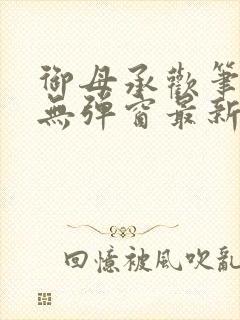 御母承歡筆
無彈窗最新
回憶被風吹亂